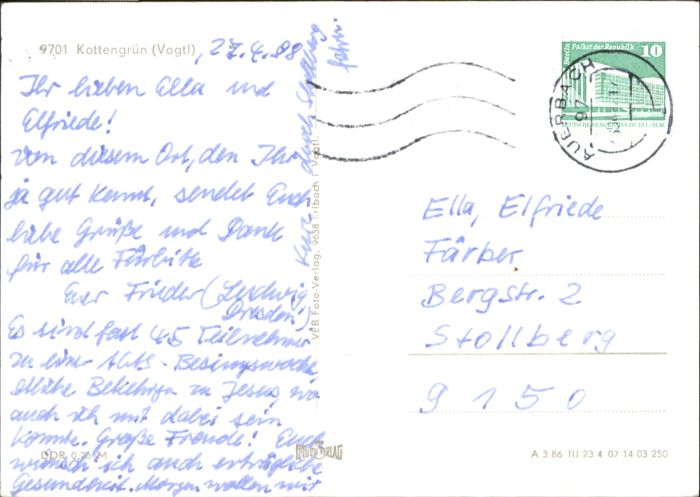 9701 Kottengrün (Vogtl), 27.4.88
Ihr lieben Ella und
Elfriede!
Von diesem Ort, den Ihr
ja gut kennt, sendet Euch
liebe Grüße und Dank
für alle Fürbitte
Euer Frieder (Ludwig
Dresden)
Es sind fast 45 Teilnehmer
zu einer Besinnungswoche
etliche zu Jesus, wo
auch ich mit dabei sein
konnte. Große Freude! Euch
wünsch ich auch erträgliche
Gesundheit. Morgen wollen wir
kurz durch Stollberg
fahren.
DDR 0,20 M
VEB Foto-Verlag, 9658 Erlbach i. Vogtl.
FOTO VERLAG
Berlin Palast der Republik 10
AUERBACH
97
Ella, Elfriede
Färber
Bergstr. 2
Stollberg
9150
A 3 86 III 23 4 07 14 03 250